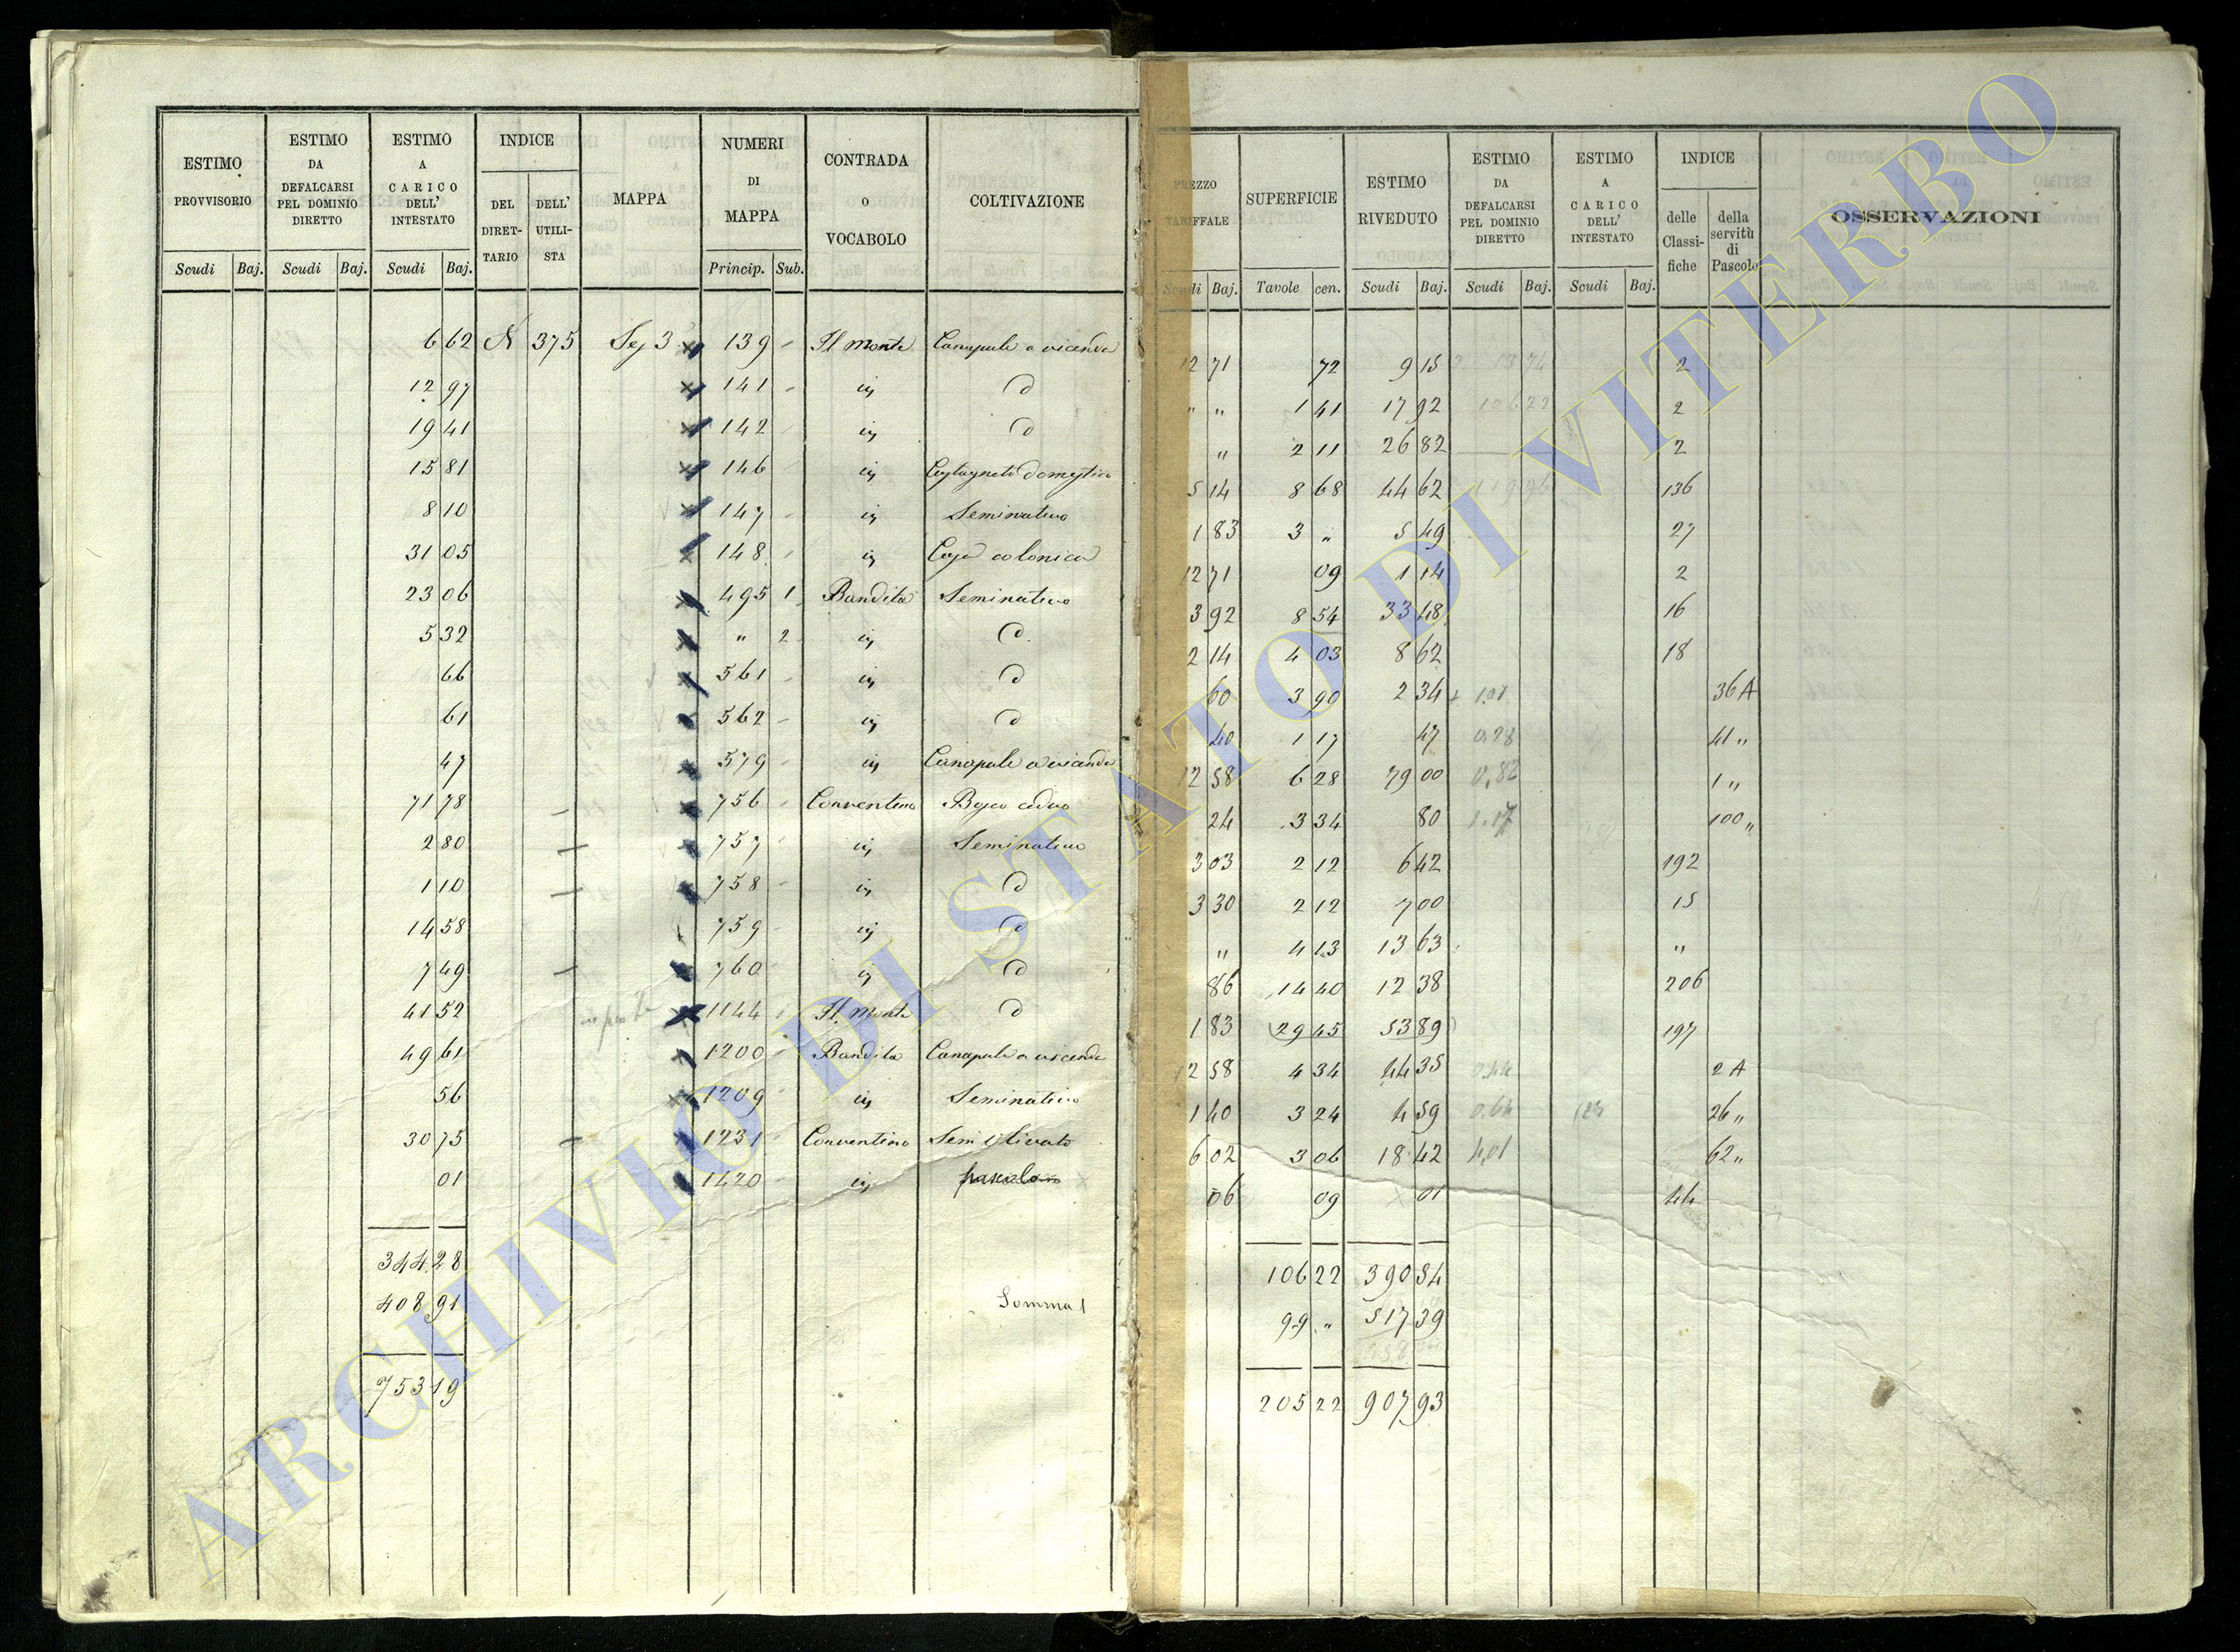 ESTIMO PROVVISORIO Scudi Baj.
ESTIMO DA DEFALCARSI PEL DOMINIO DIRETTO Scudi Baj.
ESTIMO A CARICO DELL' INTESTATO Scudi Baj.
INDICE DEL DIRETTARIO DELL' UTILISTA
MAPPA
NUMERI DI MAPPA Princip. Sub.
CONTRADA O VOCABOLO
COLTIVAZIONE
6 62 N 375 Sez 3 139 Il Monte Canapule a vicenda
12 97 141 id d
19 41 142 id d
15 81 146 id Castagneto domestico
8 10 147 id Seminativo
31 05 148 id Casa colonica
23 06 495 1 Bandita Seminativo
5 32 " 2 id d
66 561 id d
61 562 id d
47 579 id Canapule a vicenda
71 78 756 Conventino Bosco ceduo
2 80 757 id Seminativo
1 10 758 id d
14 58 759 id d
7 49 760 id d
41 52 1144 Il Monte d
49 61 1200 Bandita Canapule a vicenda
56 1209 id Seminativo
30 75 1231 Conventino Sem Olivato
01 1420 id pascolivo
344 28
408 91 Somma
753 19
PREZZO TARIFFALE Scudi Baj.
SUPERFICIE Tavole cen.
ESTIMO RIVEDUTO Scudi Baj.
ESTIMO DA DEFALCARSI PEL DOMINIO DIRETTO Scudi Baj.
ESTIMO A CARICO DELL' INTESTATO Scudi Baj.
INDICE delle Classifiche della servitù di Pascolo
OSSERVAZIONI
12 71 72 9 15 2
" " 1 41 17 92 2
" 2 11 26 82 2
5 14 8 68 44 62 136
1 83 3 " 5 49 27
12 71 09 1 14 2
3 92 8 54 33 48 16
2 14 4 03 8 62 18
60 3 90 2 34 1.01 36 A
40 1 17 47 0.28 41 "
12 58 6 28 79 00 0.82 1 "
24 3 34 80 1.17 100 "
3 03 2 12 6 42 192
3 30 2 12 7 00 15
" 4 13 13 63 "
86 14 40 12 38 206
1 83 29 45 53 89 197
12 58 4 34 44 35 2 A
1 40 3 24 4 59 0.64 26 "
6 02 3 06 18 42 4.01 62 "
06 09 01 44
106 22 390 54
99 " 517 39
205 22 907 93
ARCHIVIO DI STATO DI VITERBO